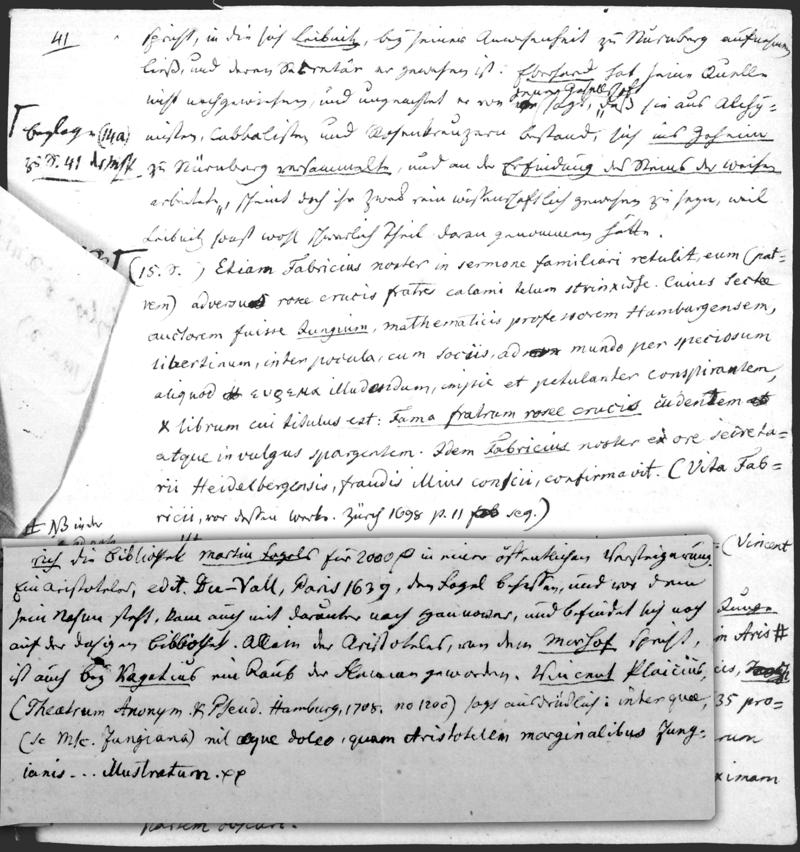 41
spricht, in die sich Leibnitz, bey seiner Anwesenheit zu Nürnberg aufnehmen
ließ, und deren Secretär er gewesen ist. Eberhard hat seine Quelle
nicht nachgewiesen, und ungeachtet er von jener Gesellschaft sagt, "daß sie aus Alchy-
misten, Cabbalisten und Rosenkreuzern bestand, sich ins Geheim
zu Nürnberg versammelte, und an der Erfindung des Steins der Weisen
arbeitete", scheint doch ihr Zweck rein wissenschaftlich gewesen zu seyn, weil
Leibnitz sonst wohl schwerlich Theil daran genommen hätte.
Beylage (14a)
zu S. 41 des Msc
(15. S. ) Etiam Fabricius noster in sermone familiari retulit, eum (pat-
rem) adversus roseae crucis fratres calami telum strinxisse. Cuius sectae
auctorem fuisse Jungium, mathematicis professorem Hamburgensem,
libertinum, inter pocula, cum sociis, ad mundo per speciosum
aliquod ευρεμα illudendum, impie et petulanter conspirantem,
& librum cui titulus est: Fama fratrum roseae crucis cudentem
atque in vulgus spargentem. Idem Fabricius noster ex ore secreta-
rii Heidelbergensis, fraudis illius conscii, confirmavit. (Vita Fab-
ricii, vor dessen Werke. Zürich 1698 p. 11 seq.)
# NB in der
(Vincent
rich die Bibliothek Martin Fogels für 2000 in einer öffentlichen Versteigerung.
Ein Aristoteles, edit. Du-Vall, Paris 1639, den Fogel besessen, und wo dem
sein Nahme steht, kam auch mit darunter nach Hannover, und befindet sich noch
auf der dasigen Bibliothek. Allein der Aristoteles, von dem Morhof spricht,
ist auch bey Vagetius ein Raub der Flammen geworden. Vincent Placcius,
(Theatrum Anonym. & Pseud. Hamburg, 1708. no 1200) sagt ausdrücklich: inter quae,
(sc Msc. Jungiana) nil aeque doleo, quam Aristotelem marginalibus Jung-
ianis... illustratum.
in Aris #
35 pro=
rum
ximam
partem obscuri.